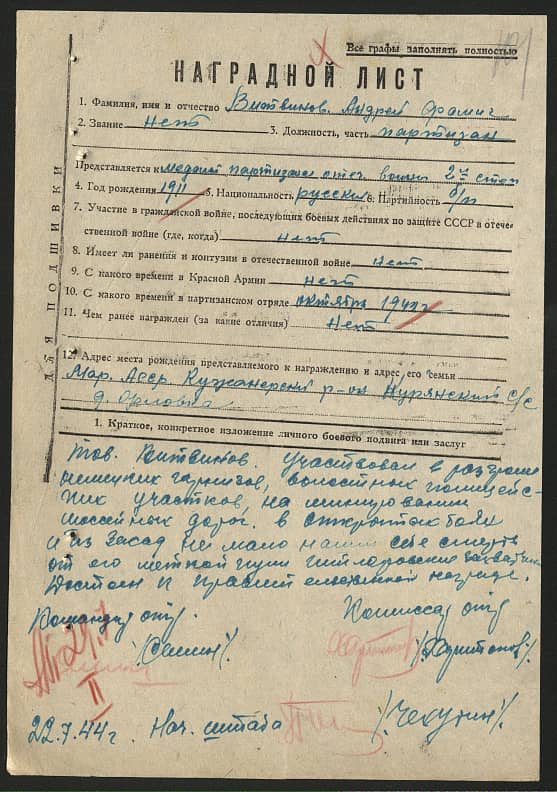 Все графы заполнять полностью
НАГРАДНОЙ ЛИСТ
1. Фамилия, имя и отчество Витвинов Андрей Фомич
2. Звание нет 3. Должность, часть партизан
Представляется к медали партизана отеч. войны 2й степ
4. Год рождения 1911 5. Национальность русский 6. Партийность б/п
7. Участие в гражданской войне, последующих боевых действиях по защите СССР в отече-
ственной войне (где, когда) нет
8. Имеет ли ранения и контузии в отечественной войне нет
9. С какого времени в Красной Армии нет
10. С какого времени в партизанском отряде октябрь
11. Чем ранее награжден (за какие отличия) нет
12. Адрес места рождения представляемого к награждению и адрес его семьи
Мар. Асср. Кужанерский р-он Нурянский с/с
д. Орловка
ДЛЯ ПОДШИВКИ
1. Краткое, конкретное изложение личного боевого подвига или заслуг
тов. Витвинов. участвовал в разгроме
немецких гарнизов, волостных полицейс-
ких участков, на минировании
шоссейных дорог. в открытых боях
и из засад не мало нашли себе смерть
от его меткой пули гитлеровские
Достоин к правительственной награде.
Командир отр. Комиссар отр
/Семин/. /Харитонов/.
22.7.44г. Нач. штаба /Чекулин/.